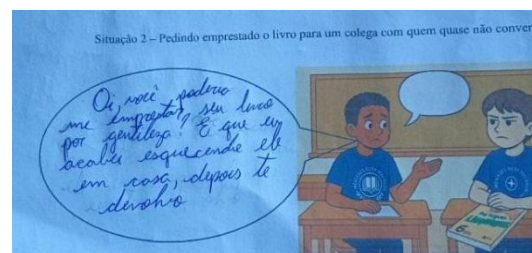 Situação 2 – Pedindo emprestado o livro para um colega com quem quase não conver
Oi, você poderia
me emprestar seu livro
por gentileza? É que eu
acabei esquecendo ele
em casa, depois te
devolvo
6